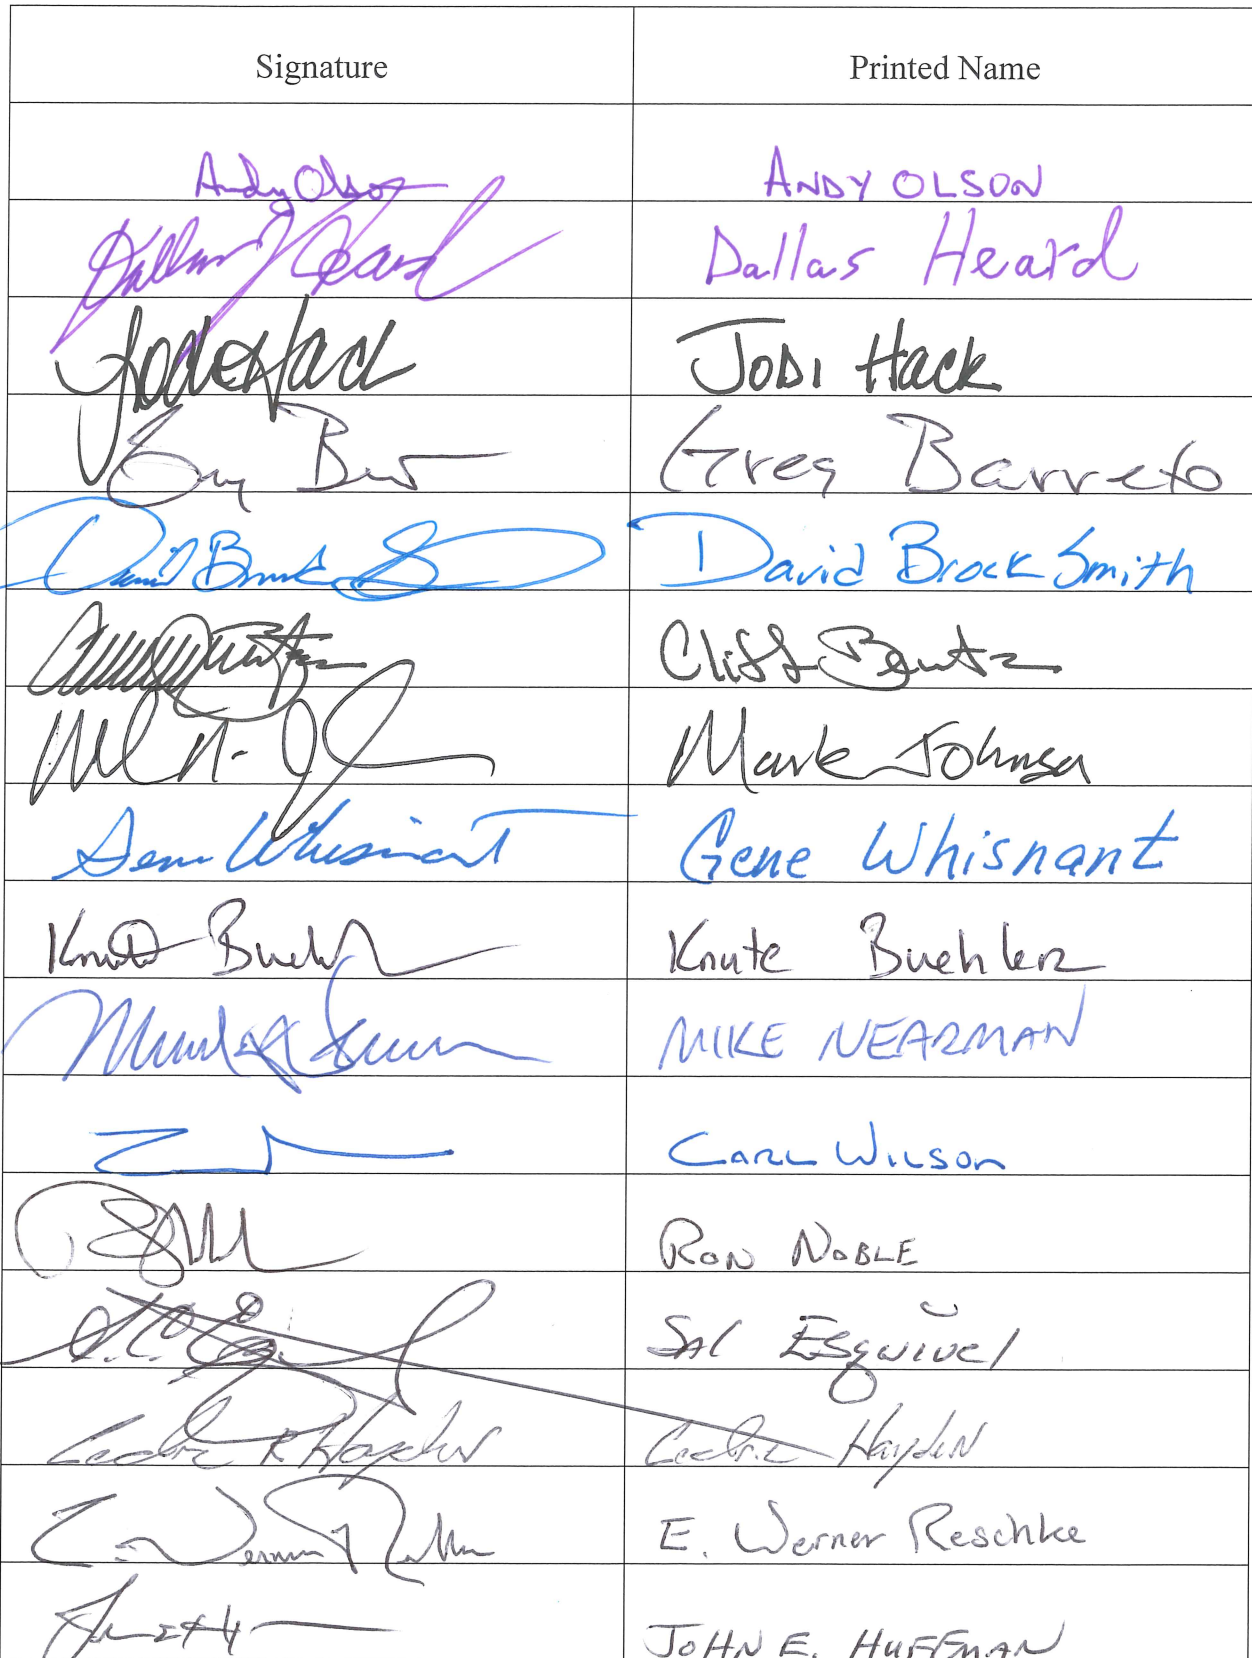 Signature Printed Name
Andy Olson ANDY OLSON
Dallas Heard Dallas Heard
Jodi Hack JODI Hack
Greg Barreto
David Brock Smith David Brock Smith
Cliff Bentz
Mark Johnson
Gene Whisnant Gene Whisnant
Knute Buehler Knute Buehler
MIKE NEARMAN
CARL WILSON
RON NOBLE
SAL ESquivel
Cedric R Hayden Cedric HaydeN
E. Werner Reschke
JOHN E. HUFFMAN